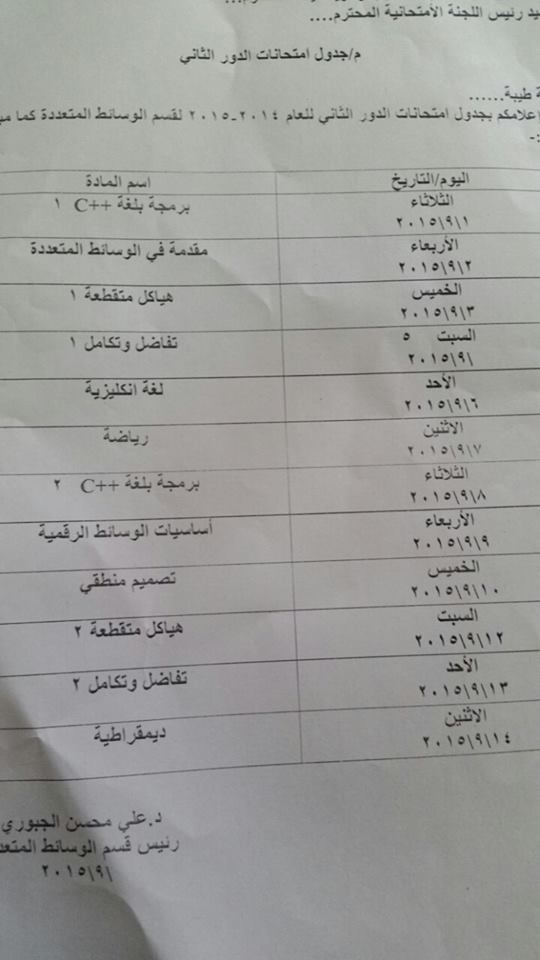 رئيس اللجنة الأمتحانية المحترم....
م/جدول امتحانات الدور الثاني
طيبة......
بجدول امتحانات الدور الثاني للعام ٢٠١٤-٢٠١٥ لقسم الوسائط المتعددة كما
:-
اليوم/التاريخ اسم المادة
الثلاثاء برمجة بلغة C++ ١
٢٠١٥\٩\١
الأربعاء مقدمة في الوسائط المتعددة
٢٠١٥\٩\٢
الخميس هياكل متقطعة ١
٢٠١٥\٩\٣
السبت ٥ تفاضل وتكامل ١
٢٠١٥\٩\
الأحد لغة انكليزية
٢٠١٥\٩\٦
الاثنين رياضة
٢٠١٥\٩\٧
الثلاثاء برمجة بلغة C++ ٢
٢٠١٥\٩\٨
الأربعاء أساسيات الوسائط الرقمية
٢٠١٥\٩\٩
الخميس تصميم منطقي
٢٠١٥\٩\١٠
السبت هياكل متقطعة ٢
٢٠١٥\٩\١٢
الأحد تفاضل وتكامل ٢
٢٠١٥\٩\١٣
الاثنين ديمقراطية
٢٠١٥\٩\١٤
د.علي محسن الجبوري
رئيس قسم الوسائط
٢٠١٥\٩\